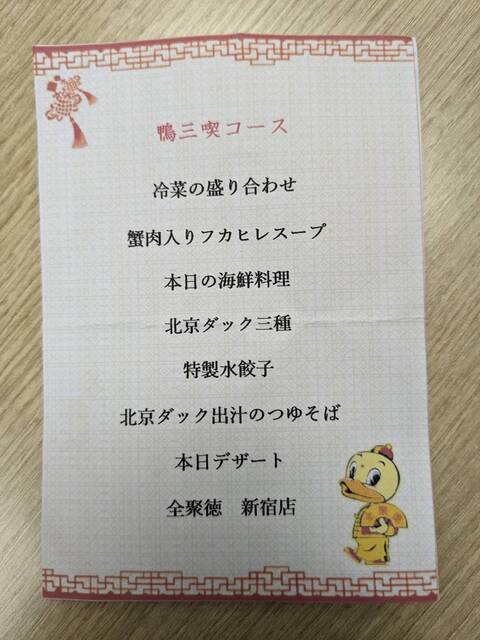 鴨三喫コース
冷菜の盛り合わせ
蟹肉入りフカヒレスープ
本日の海鮮料理
北京ダック三種
特製水餃子
北京ダック出汁のつゆそば
本日デザート
全聚徳　新宿店